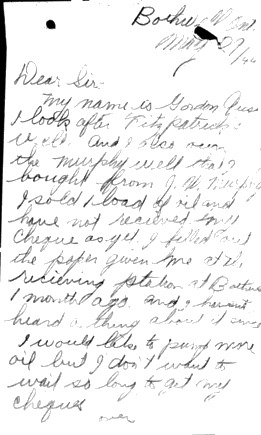 Bothwell Ont.
May 27/44
Dear Sir-
My name is Gordon
I look after Fitzpatricks
well. And I also own
the Murphy well that I
bought from J. W. Murphy
I sold 1 load of oil and
have not recieved my
cheque as yet. I filled out
the paper given me at the
recieving station at Bothwell
1 month ago. and I havent
heard a thing about it since
I would like to pump more
oil but I don't want to
wait so long to get my
cheques
over